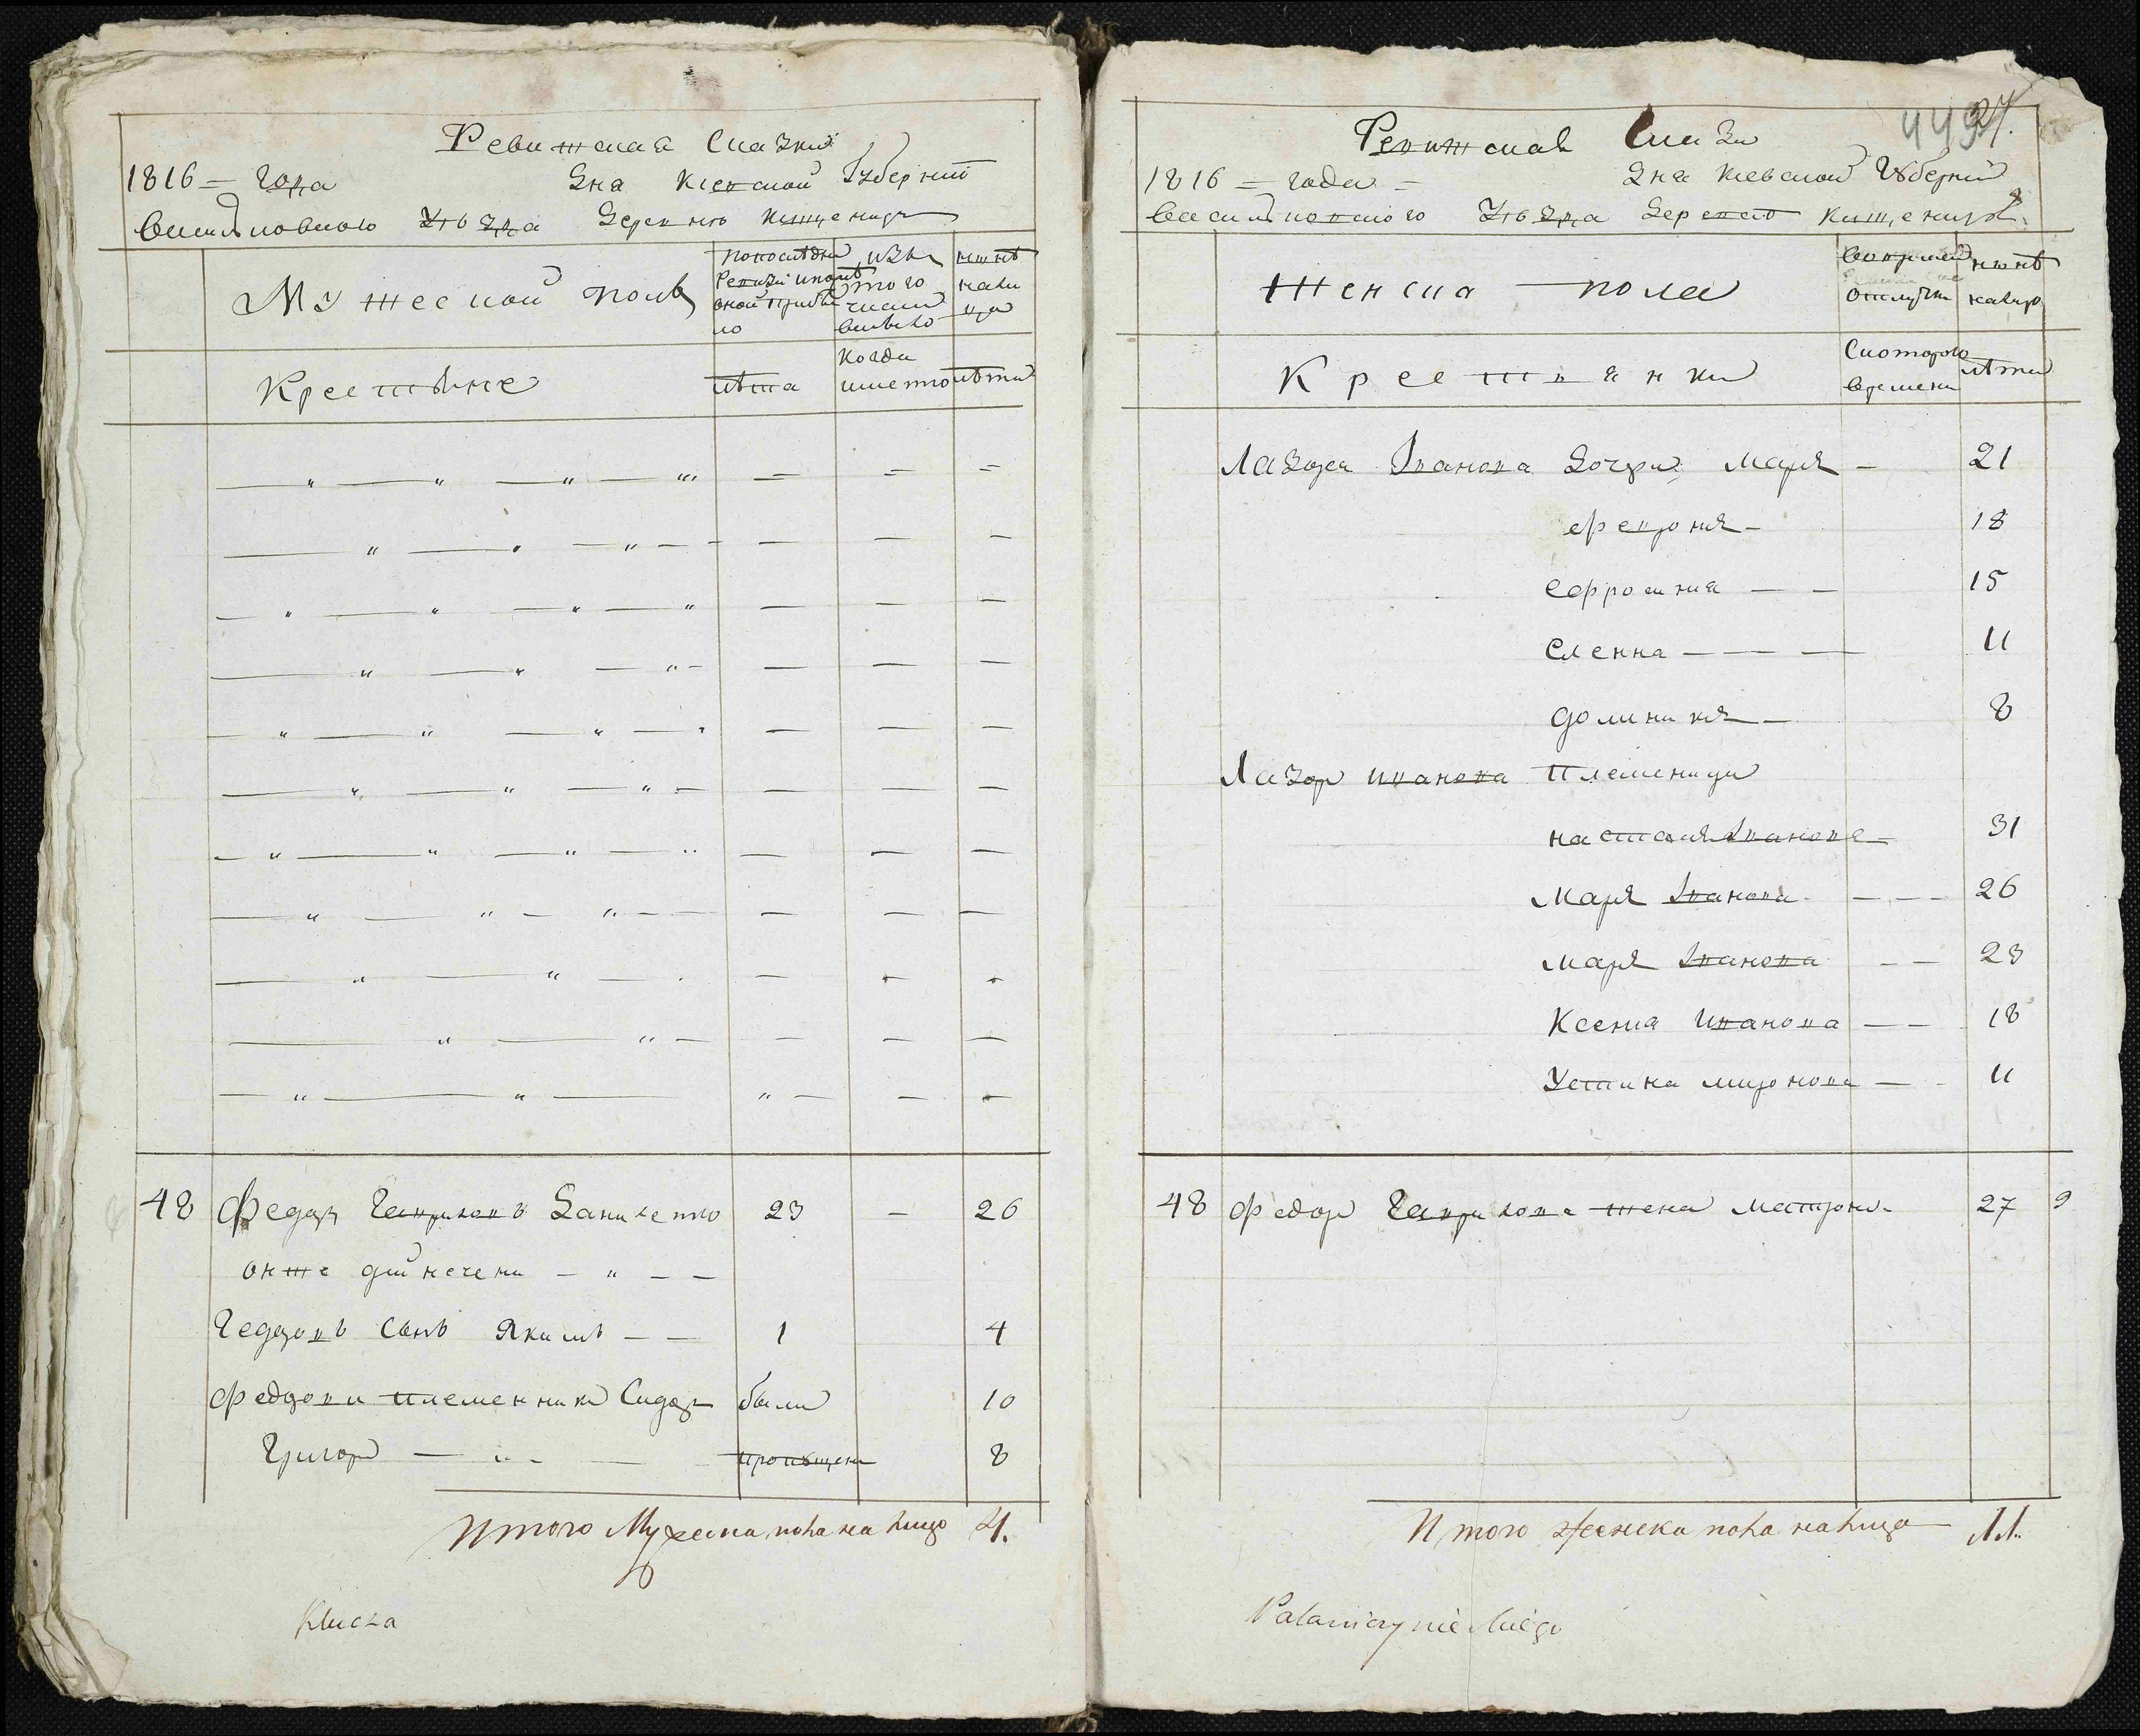 Ревижская Сказка
1816 = года Дня Киевской Губернии
Василковского Уѣзда Деревнѣ Кищенцы
Мужеской полъ
по последней Ревизии и после оной прибыло
изъ того числа выбыло
нынѣ налицо
Крестьяне
лѣта
когда именно
лѣта
48 Федоръ Гавриловъ Даниленко 23 — 26
онже
Федоровъ Сынъ Якимъ — — 1 4
Федорови племенники Сидоръ были 10
Григори — пропущени 8
Итого Мужеска пола на лицо 4.
27.
Ревижская Сказка
1816 = года = Дня Киевской Губернии
Василковского Уѣзда Деревнѣ Кищенцы
Женска пола
Во временной отлучки
нынѣ налицо
Крестьянки
С которого времени
лѣта
Лазора Иванова Дочери Маря — 21
Феврония — 18
Ефросиния — — 15
Еленна — — — 11
Доминикия — 8
Лазор Иванова Племеници
Насталия Иванова — 31
Маря Иванова — — — 26
Маря Иванова — — 23
Ксения Иванова — — 18
Устина Миронова — — 11
48 Федор Гаврилова жена Матрона 27 9
Итого женска пола на лицо 11.